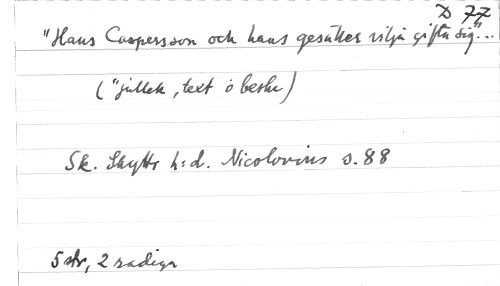 D 77
"Hans Caspersson och hans gesäller vilja gifta sig"...
("jullek, text o beskr)
Sk. Skytts h:d. Nicolovius s. 88
5 str, 2 radiga